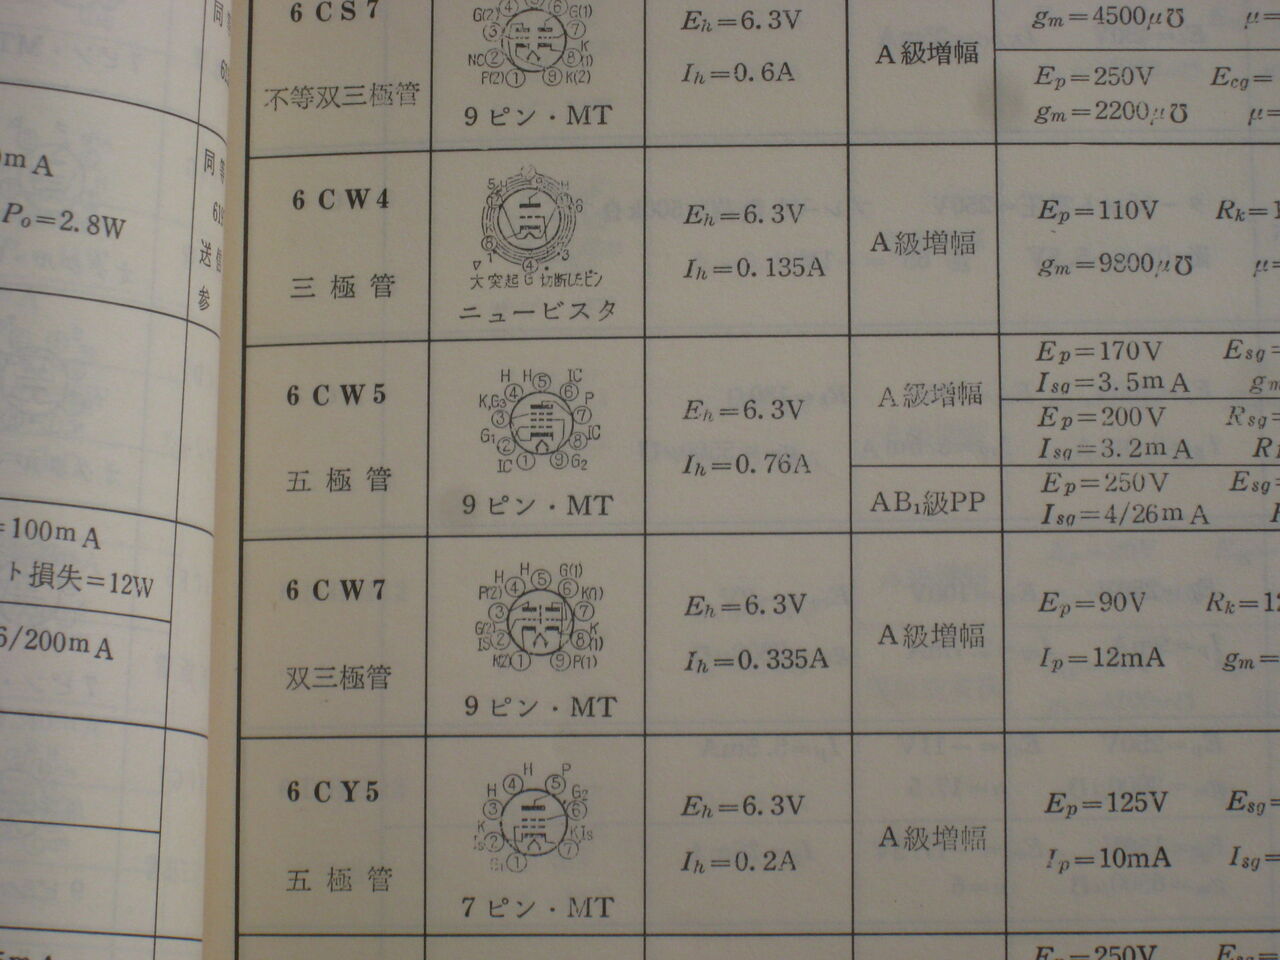 同
mA
Po=2.8W
同等
送信
参
=100mA
ト損失=12W
/200mA
6CS7
不等双三極管
G(2) G(1)
K
NC
P(2) ① ⑨ K(2)
9ピン・MT
Eh=6.3V
Ih=0.6A
A級増幅
gm=4500μ℧ μ=
Ep=250V Ecg=
gm=2200μ℧ μ=
6CW4
三極管
大突起 G 切断したピン
ニュービスタ
Eh=6.3V
Ih=0.135A
A級増幅
Ep=110V Rk=1
gm=9800μ℧ μ=
6CW5
五極管
H H IC
K,G3 P
G1 IC
IC G2
9ピン・MT
Eh=6.3V
Ih=0.76A
A級増幅
AB1級PP
Ep=170V Esg=
Isg=3.5mA gm
Ep=200V Rsg=
Isg=3.2mA
Ep=250V Esg=
Isg=4/26mA
6CW7
双三極管
H H G(1)
P(2) K(1)
G(2) K
IS
K(2) P(1)
9ピン・MT
Eh=6.3V
Ih=0.335A
A級増幅
Ep=90V Rk=12
Ip=12mA gm=
6CY5
五極管
H P
H G2
K KIs
7ピン・MT
Eh=6.3V
Ih=0.2A
A級増幅
Ep=125V Esg=
Ip=10mA Isg=
Ep=250V Esg=